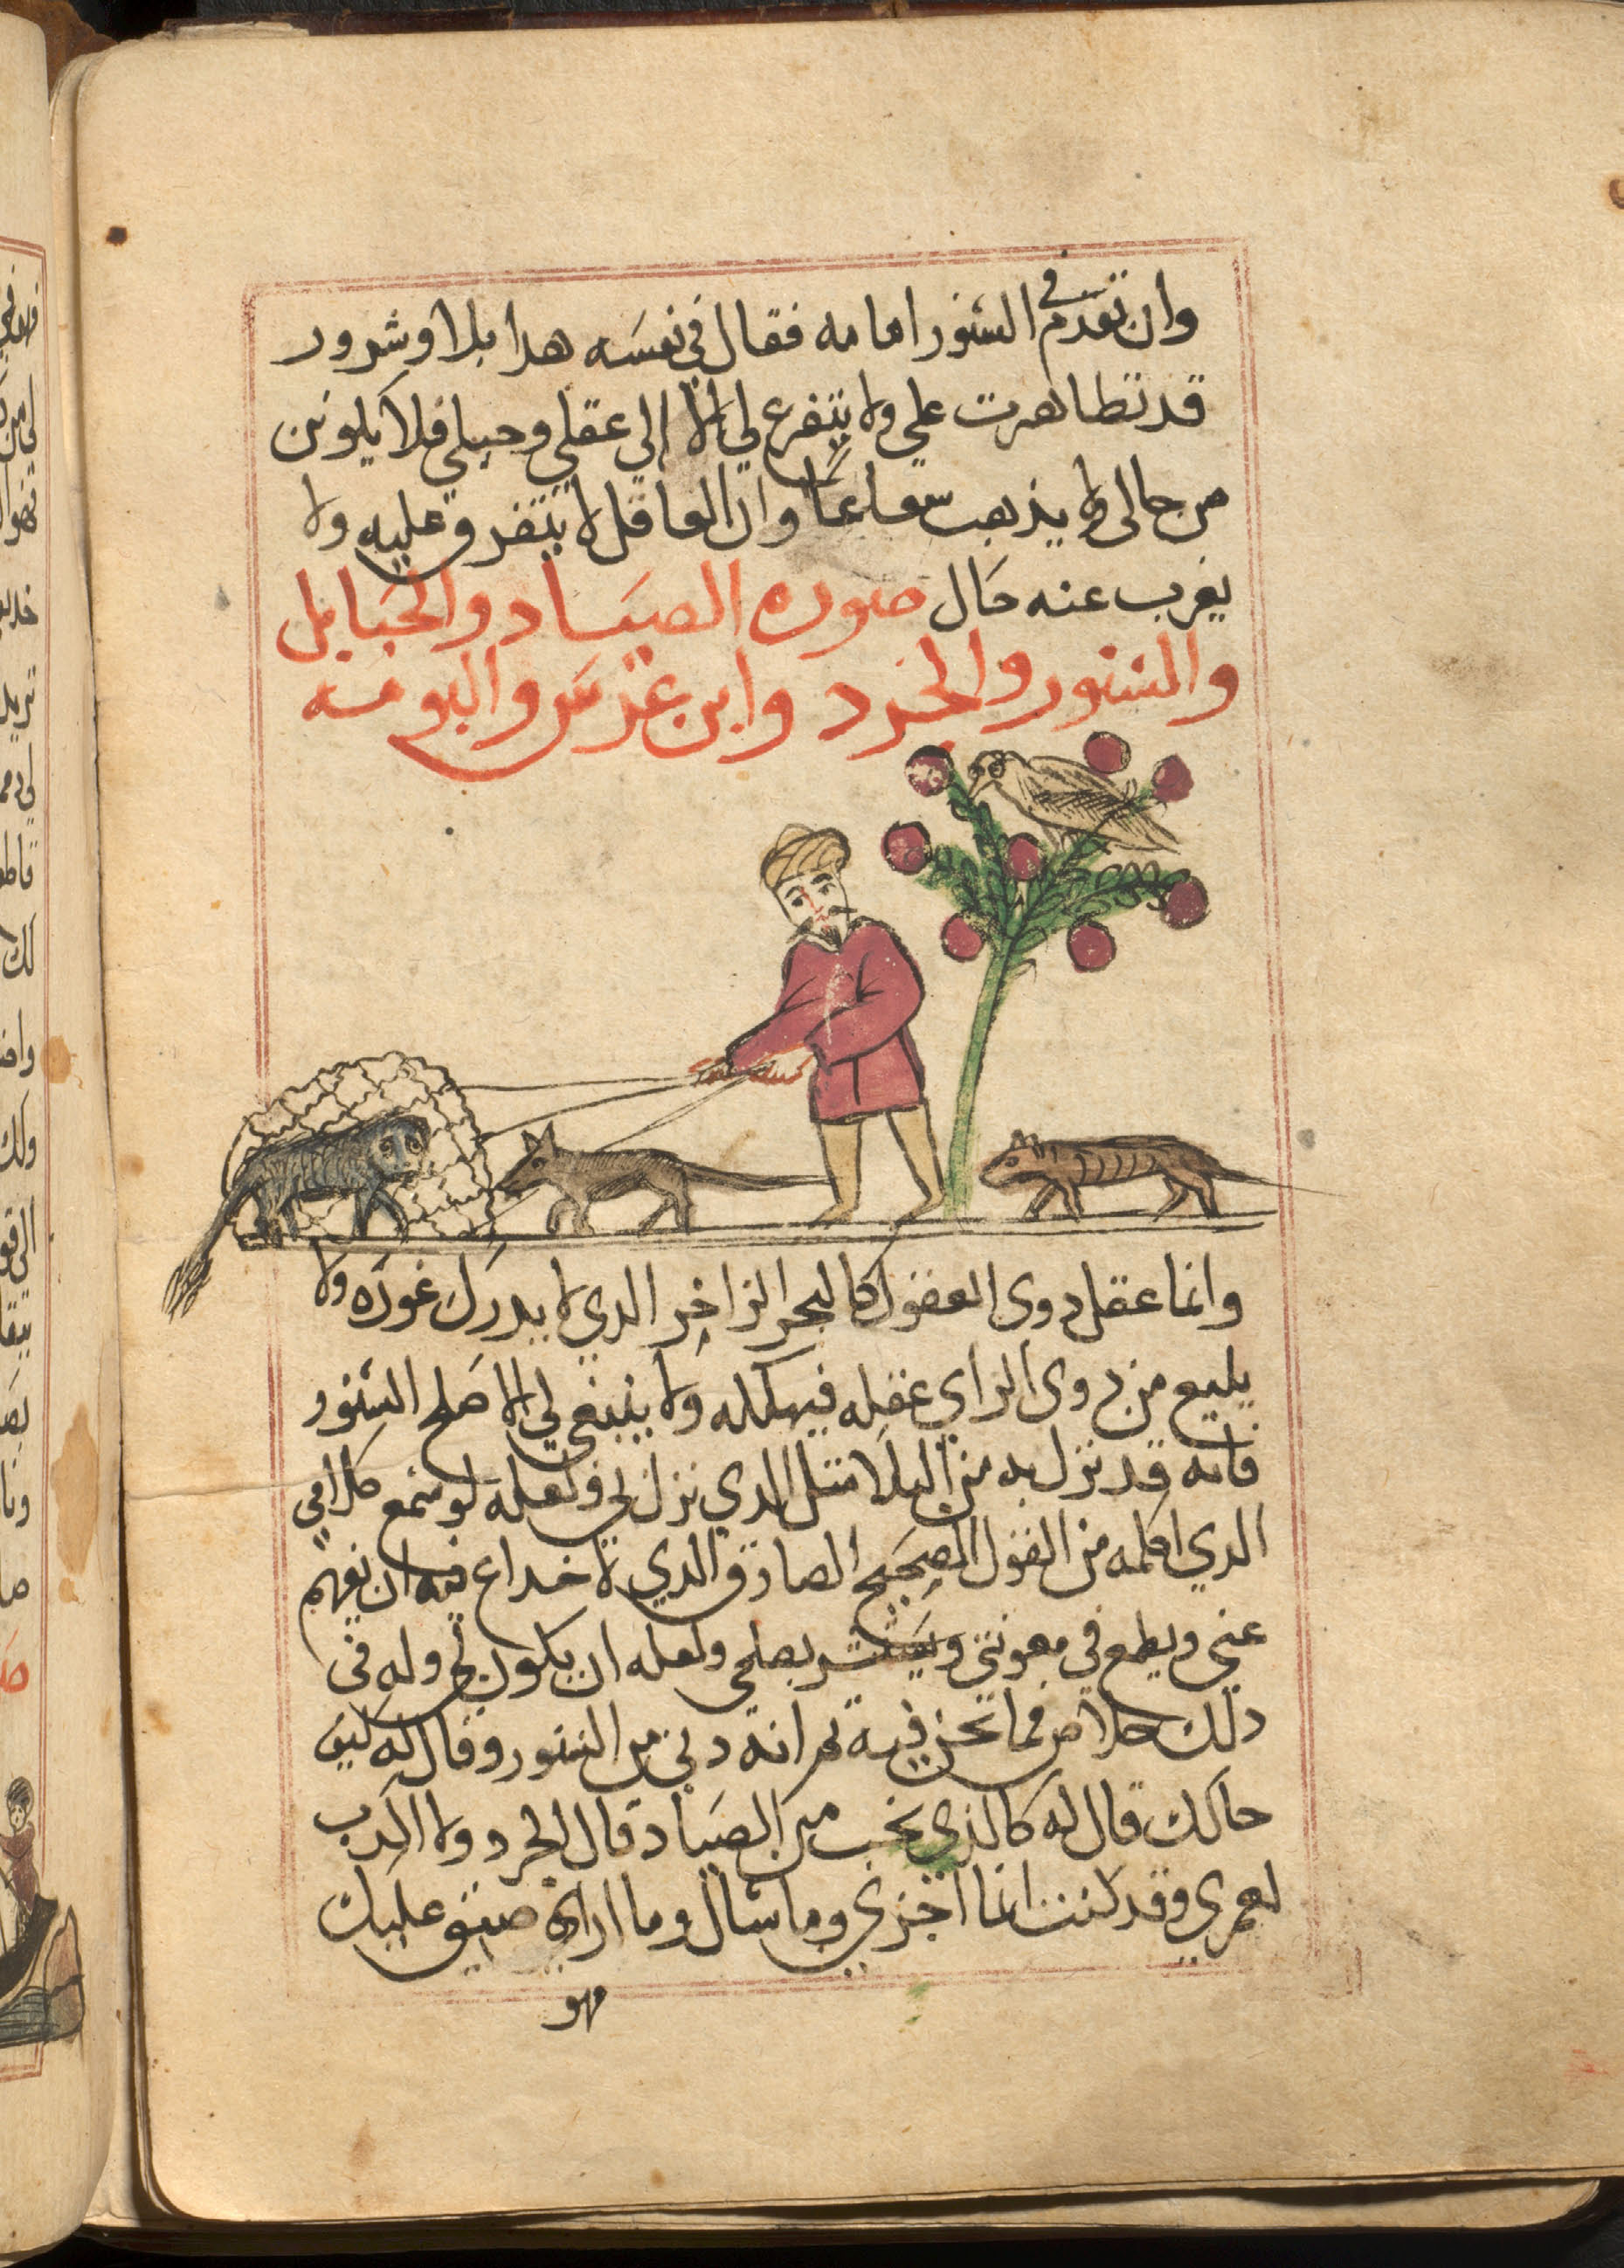 وان تقدم في السنور امامه فقال في نفسه هدا بلا وشرور
قد تظاهرت علي ولا يتفرع لي الا الي عقلي وحيلي فلا يكونن
من حالي ولا يذهب سعاعا وان العاقل لا يتفرق عليه ولا
يغرب عنه حال صوره الصياد والحبايل
والسنور والجرد وابن عرس والبومه
وانما عقل دوي العقول كالبحر الزاخر الدي لا يدرك غوره ولا
يبلع من دوي الراي عقله فيهلكه ولا ينبغي لي الا صلح السنور
فانه قد نزل به من البلا متل الدي نزل بي ولعله لو سمع كلامي
الدي اكلمه من القول الصحيح الصادق الدي لا خداع فيه ان يفهم
عني ويطمع في معونتي بصلحي ولعله ان يكون لي وله في
دلك خلاص مما نحن فيه تم انه دني من السنور وقال له كيف
حالك قال له كالذي تحب من الصياد قال الجرد ولا الكدب
لعمري وقد كنت انما اخزي وما سال وما اراك ضيق عليك
فهو